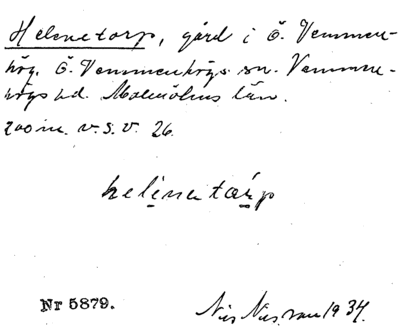 Helenetorp, gård i Ö. Vemmen-
hög, Ö. Vemmenhögs sn. Vemmen-
högs hd. Malmöhus län.
200 m. v.s.v. 26.
helinetårp
Nr 5879.
Nils Nilsson 1934.